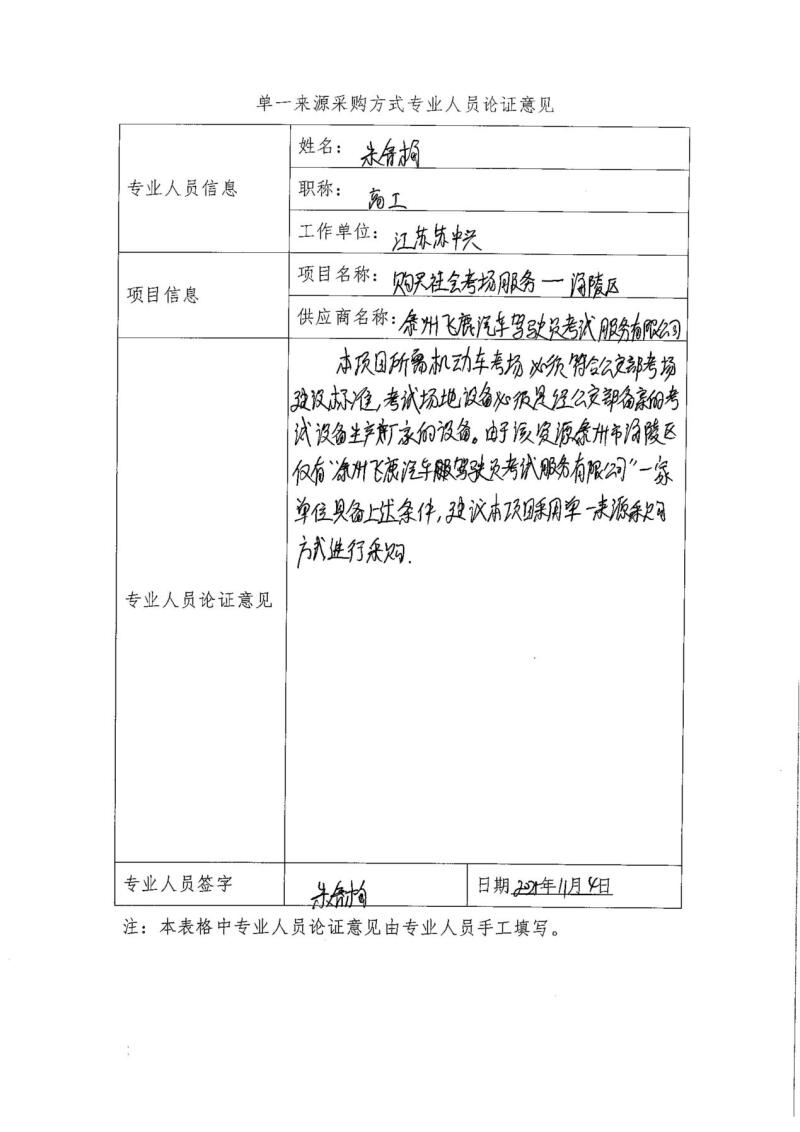 单一来源采购方式专业人员论证意见
专业人员信息
姓名：朱
职称：高工
工作单位：江苏苏中兴
项目信息
项目名称：购买社会考场服务—海陵区
供应商名称：泰州飞鹿汽车驾驶员考试服务有限公司
专业人员论证意见
本项目所需机动车考场必须符合公安部考场
建设标准，考试场地设备必须是经公安部备案的考
试设备生产厂家的设备。由于该资源泰州市海陵区
仅有“泰州飞鹿汽车驾驶员考试服务有限公司”一家
单位具备上述条件，建议本项目采用单一来源采购
方式进行采购.
专业人员签字
朱
日期 2021年11月4日
注：本表格中专业人员论证意见由专业人员手工填写。